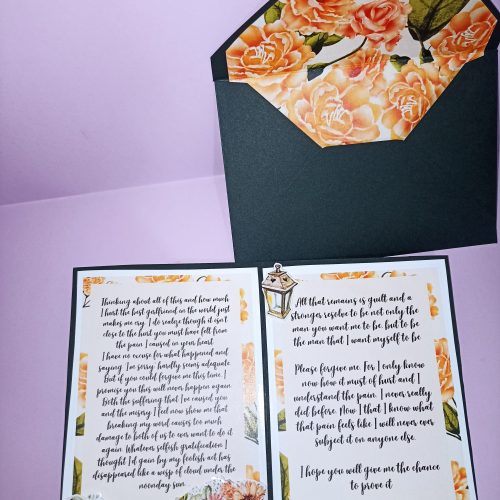 Thinking about all of this and how much
I hurt the best girlfriend in the world just
makes me cry. I do realize though it isn't
close to the hurt you must have felt from
the pain I caused in your heart.
I have no excuse for what happened and
saying I'm sorry hardly seems adequate.
But if you could forgive me this time, I
promise you this will never happen again.
Both the suffering that I've caused you
and the misery I feel now show me that
breaking my word causes too much
damage to both of us to ever want to do it
again. Whatever selfish gratification I
thought I'd gain by my foolish act has
disappeared like a wisp of cloud under the
noonday sun.
All that remains is guilt and a
stronger resolve to be not only the
man you want me to be, but to be
the man that I want myself to be.
Please forgive me. For I only know
now how it must of hurt and I
understand the pain. I never really
did before. Now I that I know what
that pain feels like I will never ever
subject it on anyone else.
I hope you will give me the chance
to prove it